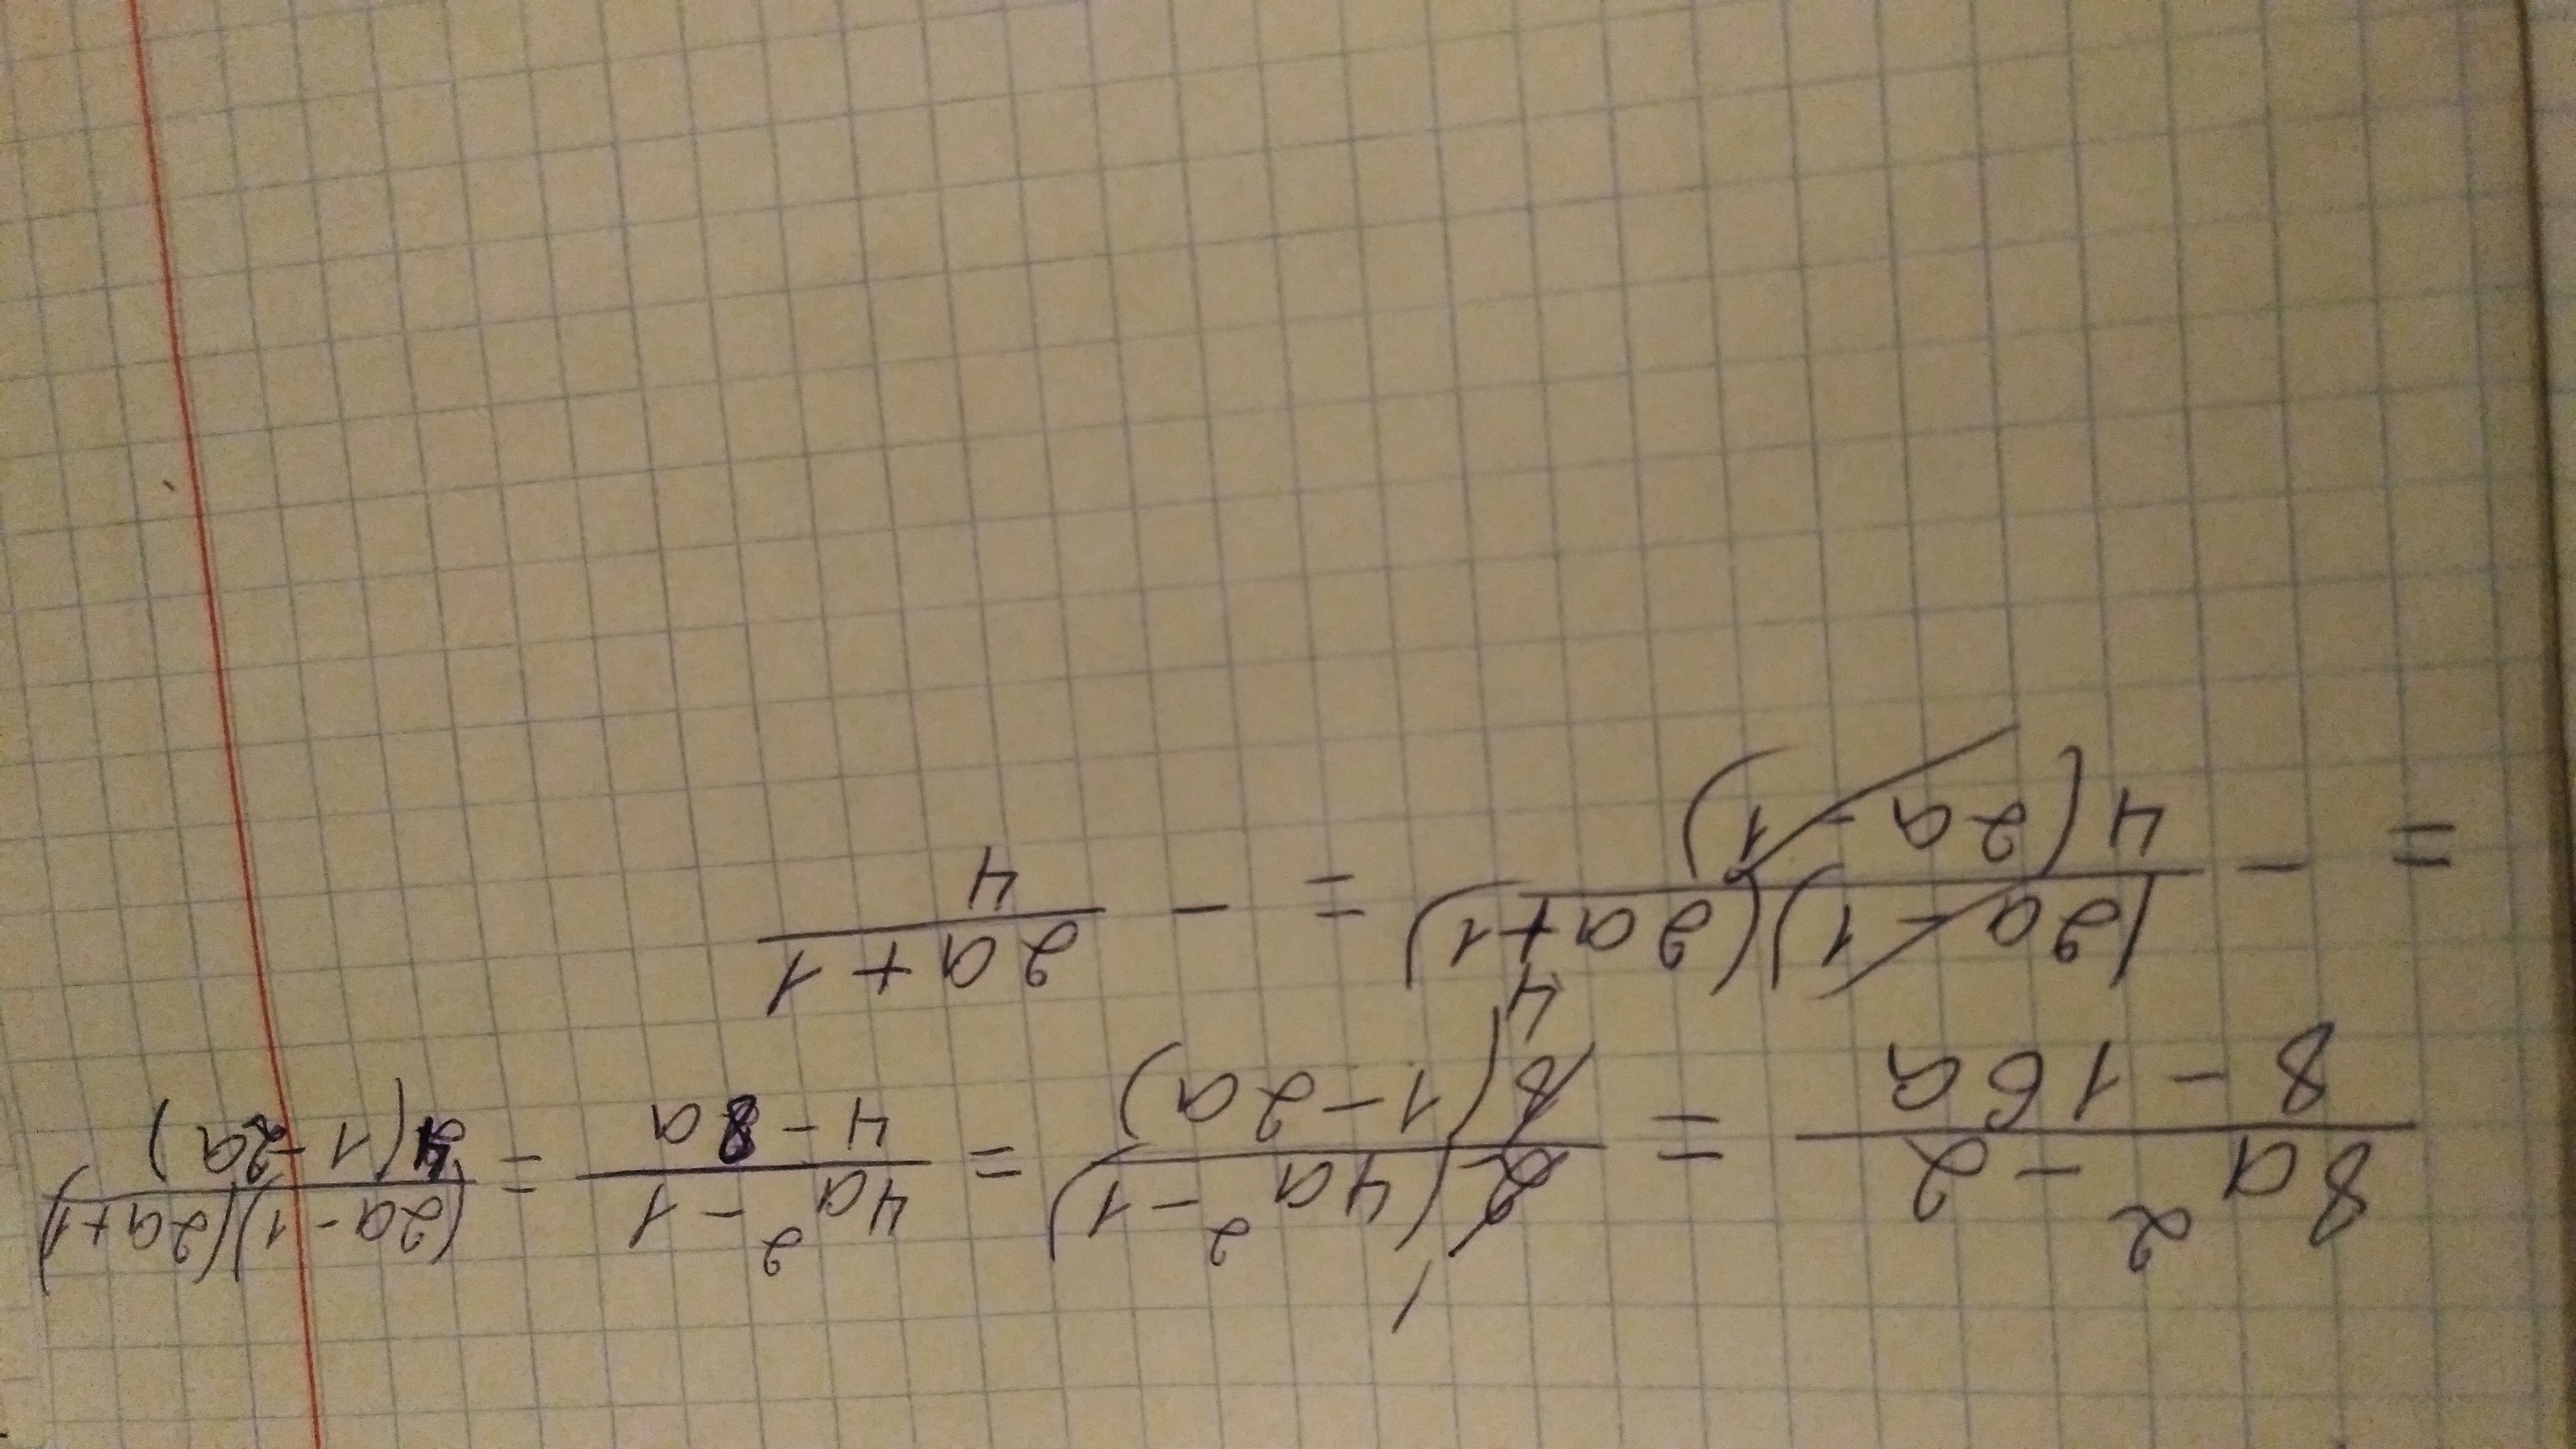 (8a² - 2)/(8 - 16a) = (2(4a² - 1))/(8(1 - 2a)) 4 = (4a² - 1)/(4 - 8a) = ((2a - 1)(2a + 1))/(4(1 - 2a))
= - ((2a - 1)(2a + 1))/(4(2a - 1)) = - (2a + 1)/4